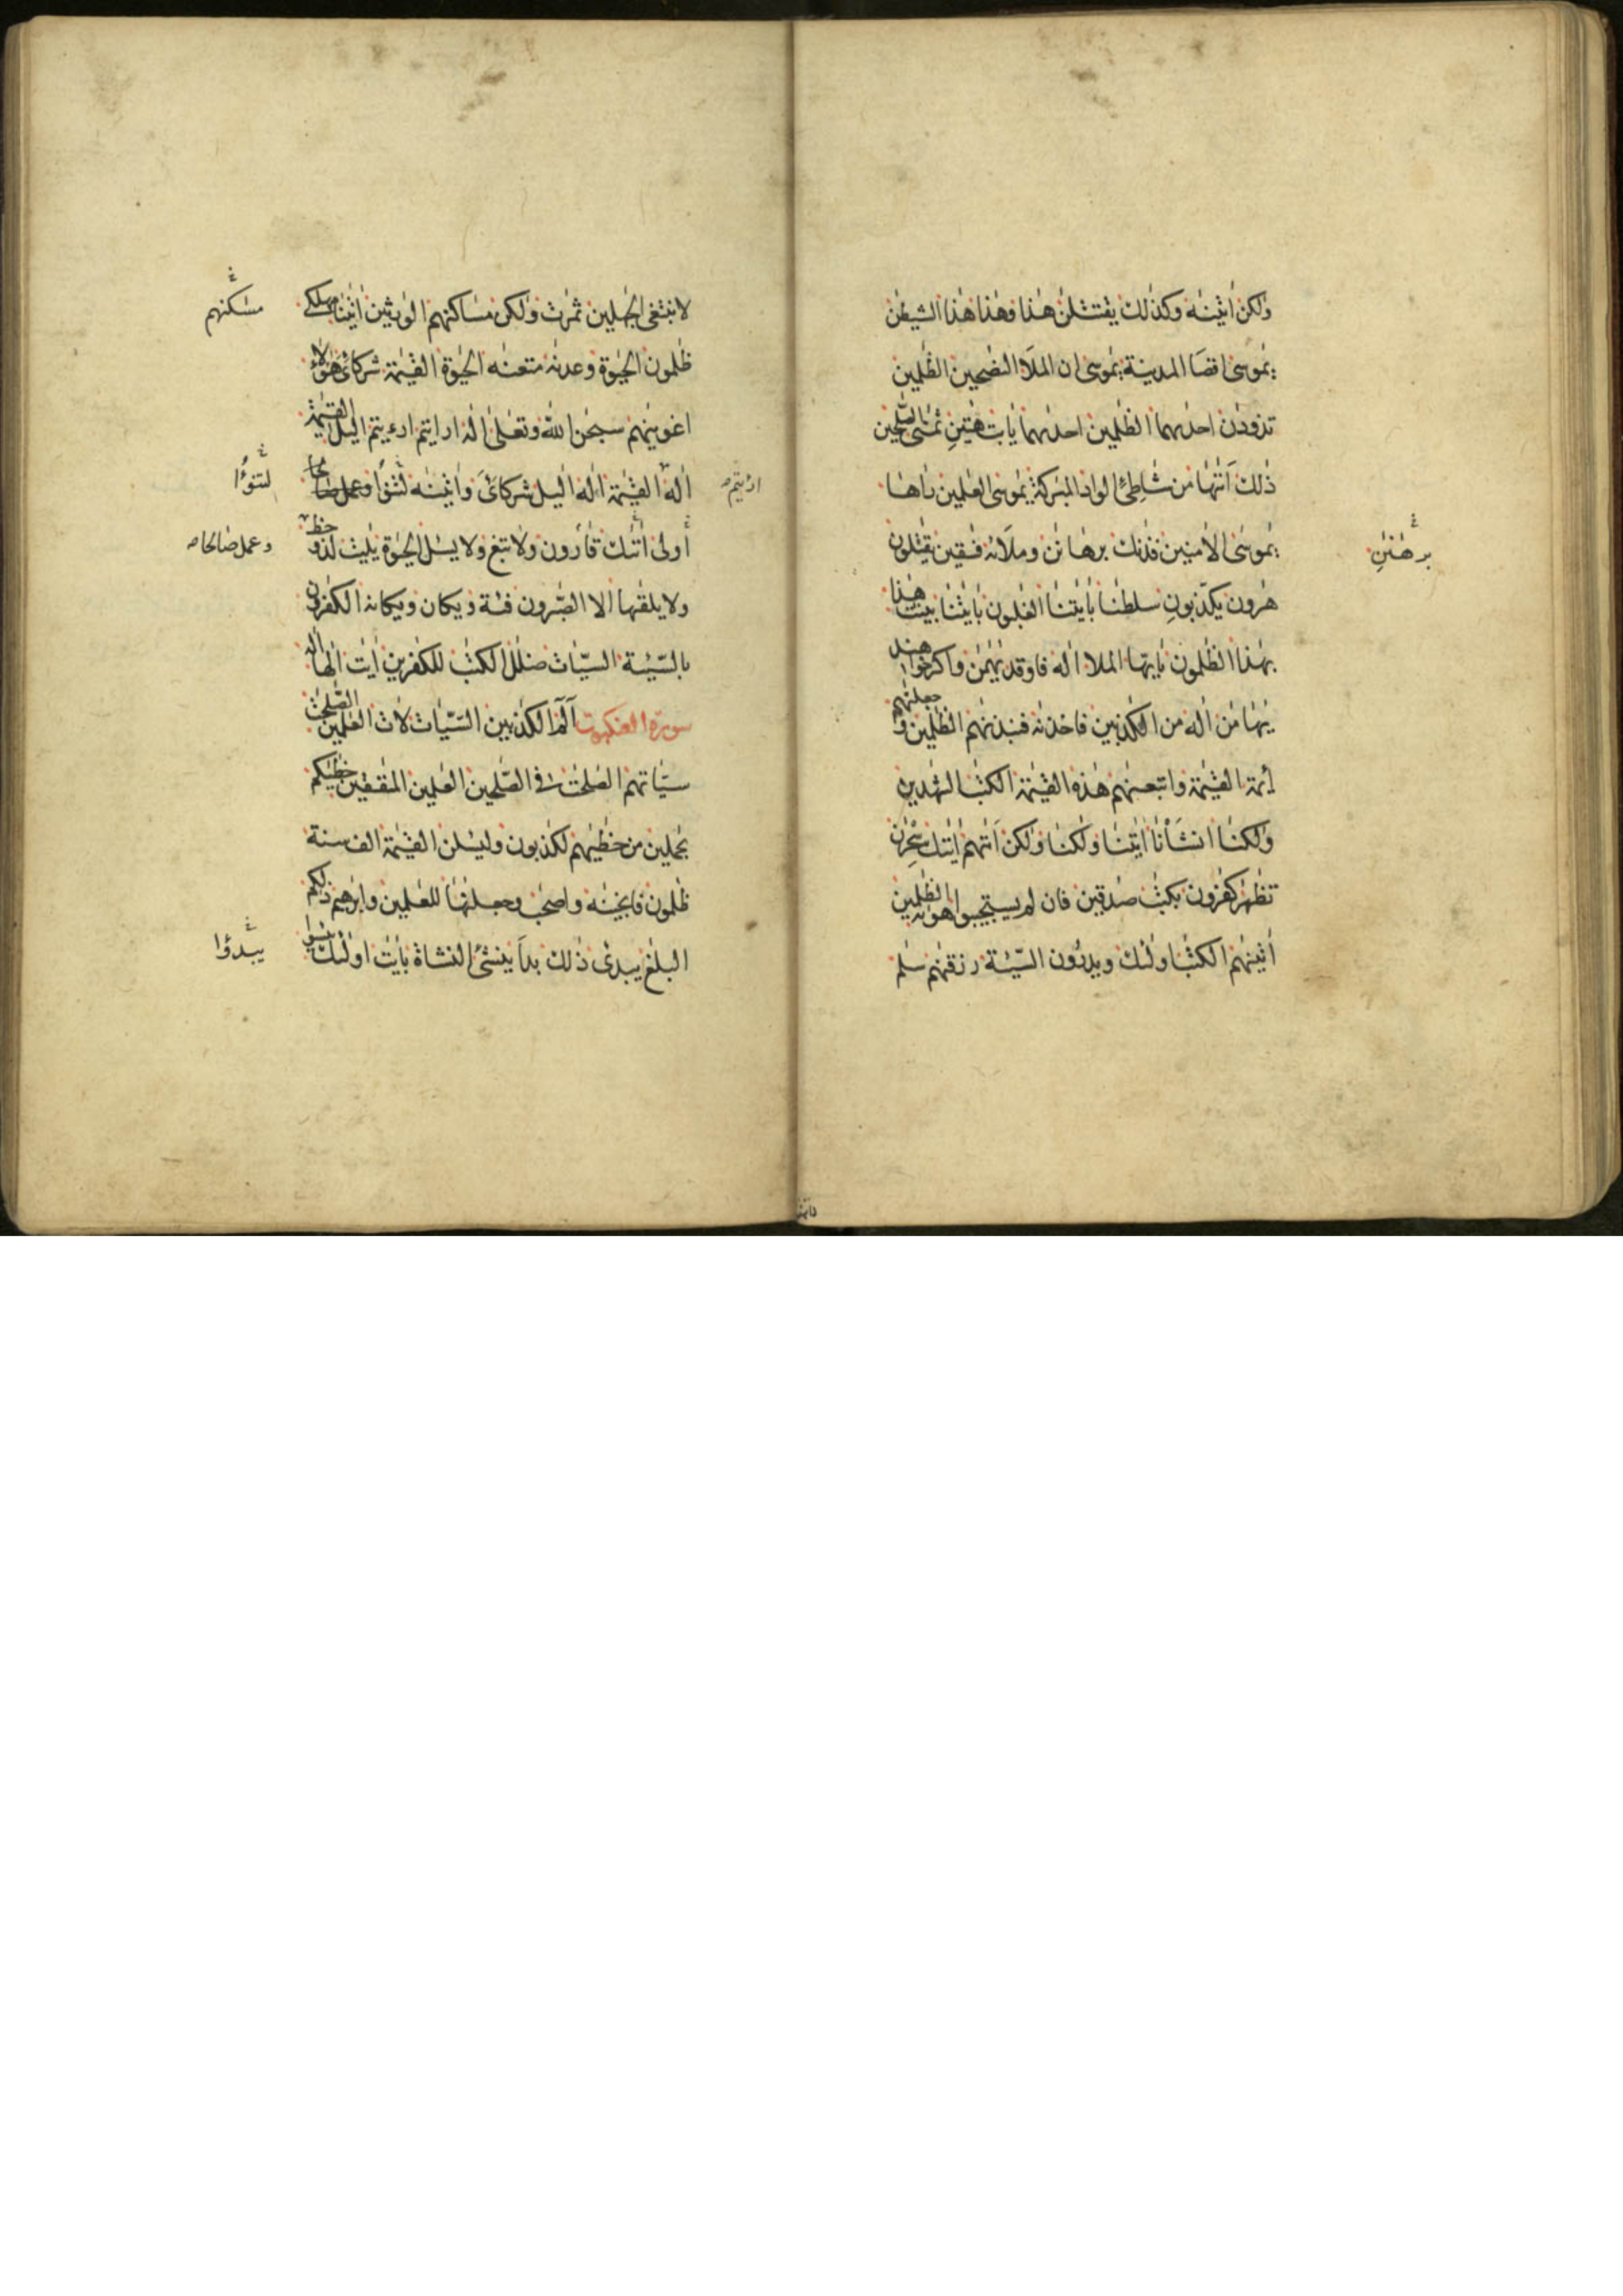 ولكن اتينه وكذلك يقتتلن هذا وهذا هذا الشيطن
يموسى اقصا المدينة يموسى ان الملا النصحين الظلمين
تذودن احدىهما الظلمين احدىهما يابت هتين ثمنى الصلحين
ذلك اتىها من شاطئ الواد المبركة يموسى العلمين راها
يموسى الامنين فذنك برهانن وملائه فسقين يقتلون
هرون يكذبون سلطنا بايتنا الغلبون بايتنا بينت هذا
بهذا الظلمون يايها الملا اله فاوقد يهمن
ينها من اله من الكذبين فاخذنه فنبذنهم الظلمين و جعلنهم
ائمة القيمة واتبعنهم هذه القيمة الكتب الشهدين
ولكنا انشانا ايتنا ولكنا ولكن اتىهم سحرن
تظهر كفرون بكتب صدقين فان لم يستجيبوا هويه الظلمين
اتينهم الكتب اولئك ويدرؤن السيئة رزقنهم سلم
برهنن
لا نبتغى الجهلين ثمرت ولكن مساكنهم الورثين ايتنا مهلكى
ظلمون الحيوة وعدنه متعنه الحيوة القيمة شركائى هؤلاء
اغوينهم سبحن الله وتعلى اله ارايتم ارءيتم اليل القيمة
اله القيمة اله اليل شركائى واتينه لتنوأ وعمل صالحا
اولى اتىك قارون ولا تبغ ولا يسل الحيوة يليت لذو حظ
ولا يلقىها الا الصبرون فئة ويكان ويكانه الكفرون
بالسيئة السيات ضلل الكتب للكفرين ايت الها اله
سورة العنكبوت الم الكذبين السيات لات العلمين الصلحت
سياتهم الصلحت فى الصلحين العلمين المنفقين خطيكم
بحملين من خطيهم لكذبون وليسلن القيمة الف سنة
ظلمون فانجينه واصحب وجعلنها للعلمين وابرهيم ذلكم
البلغ يبدئ ذلك بدا ينشئ النشاة بايت اولئك يئسوا
مسكنهم
لتنوأ
ارءيتم
وعمل صالحا
يبدؤا